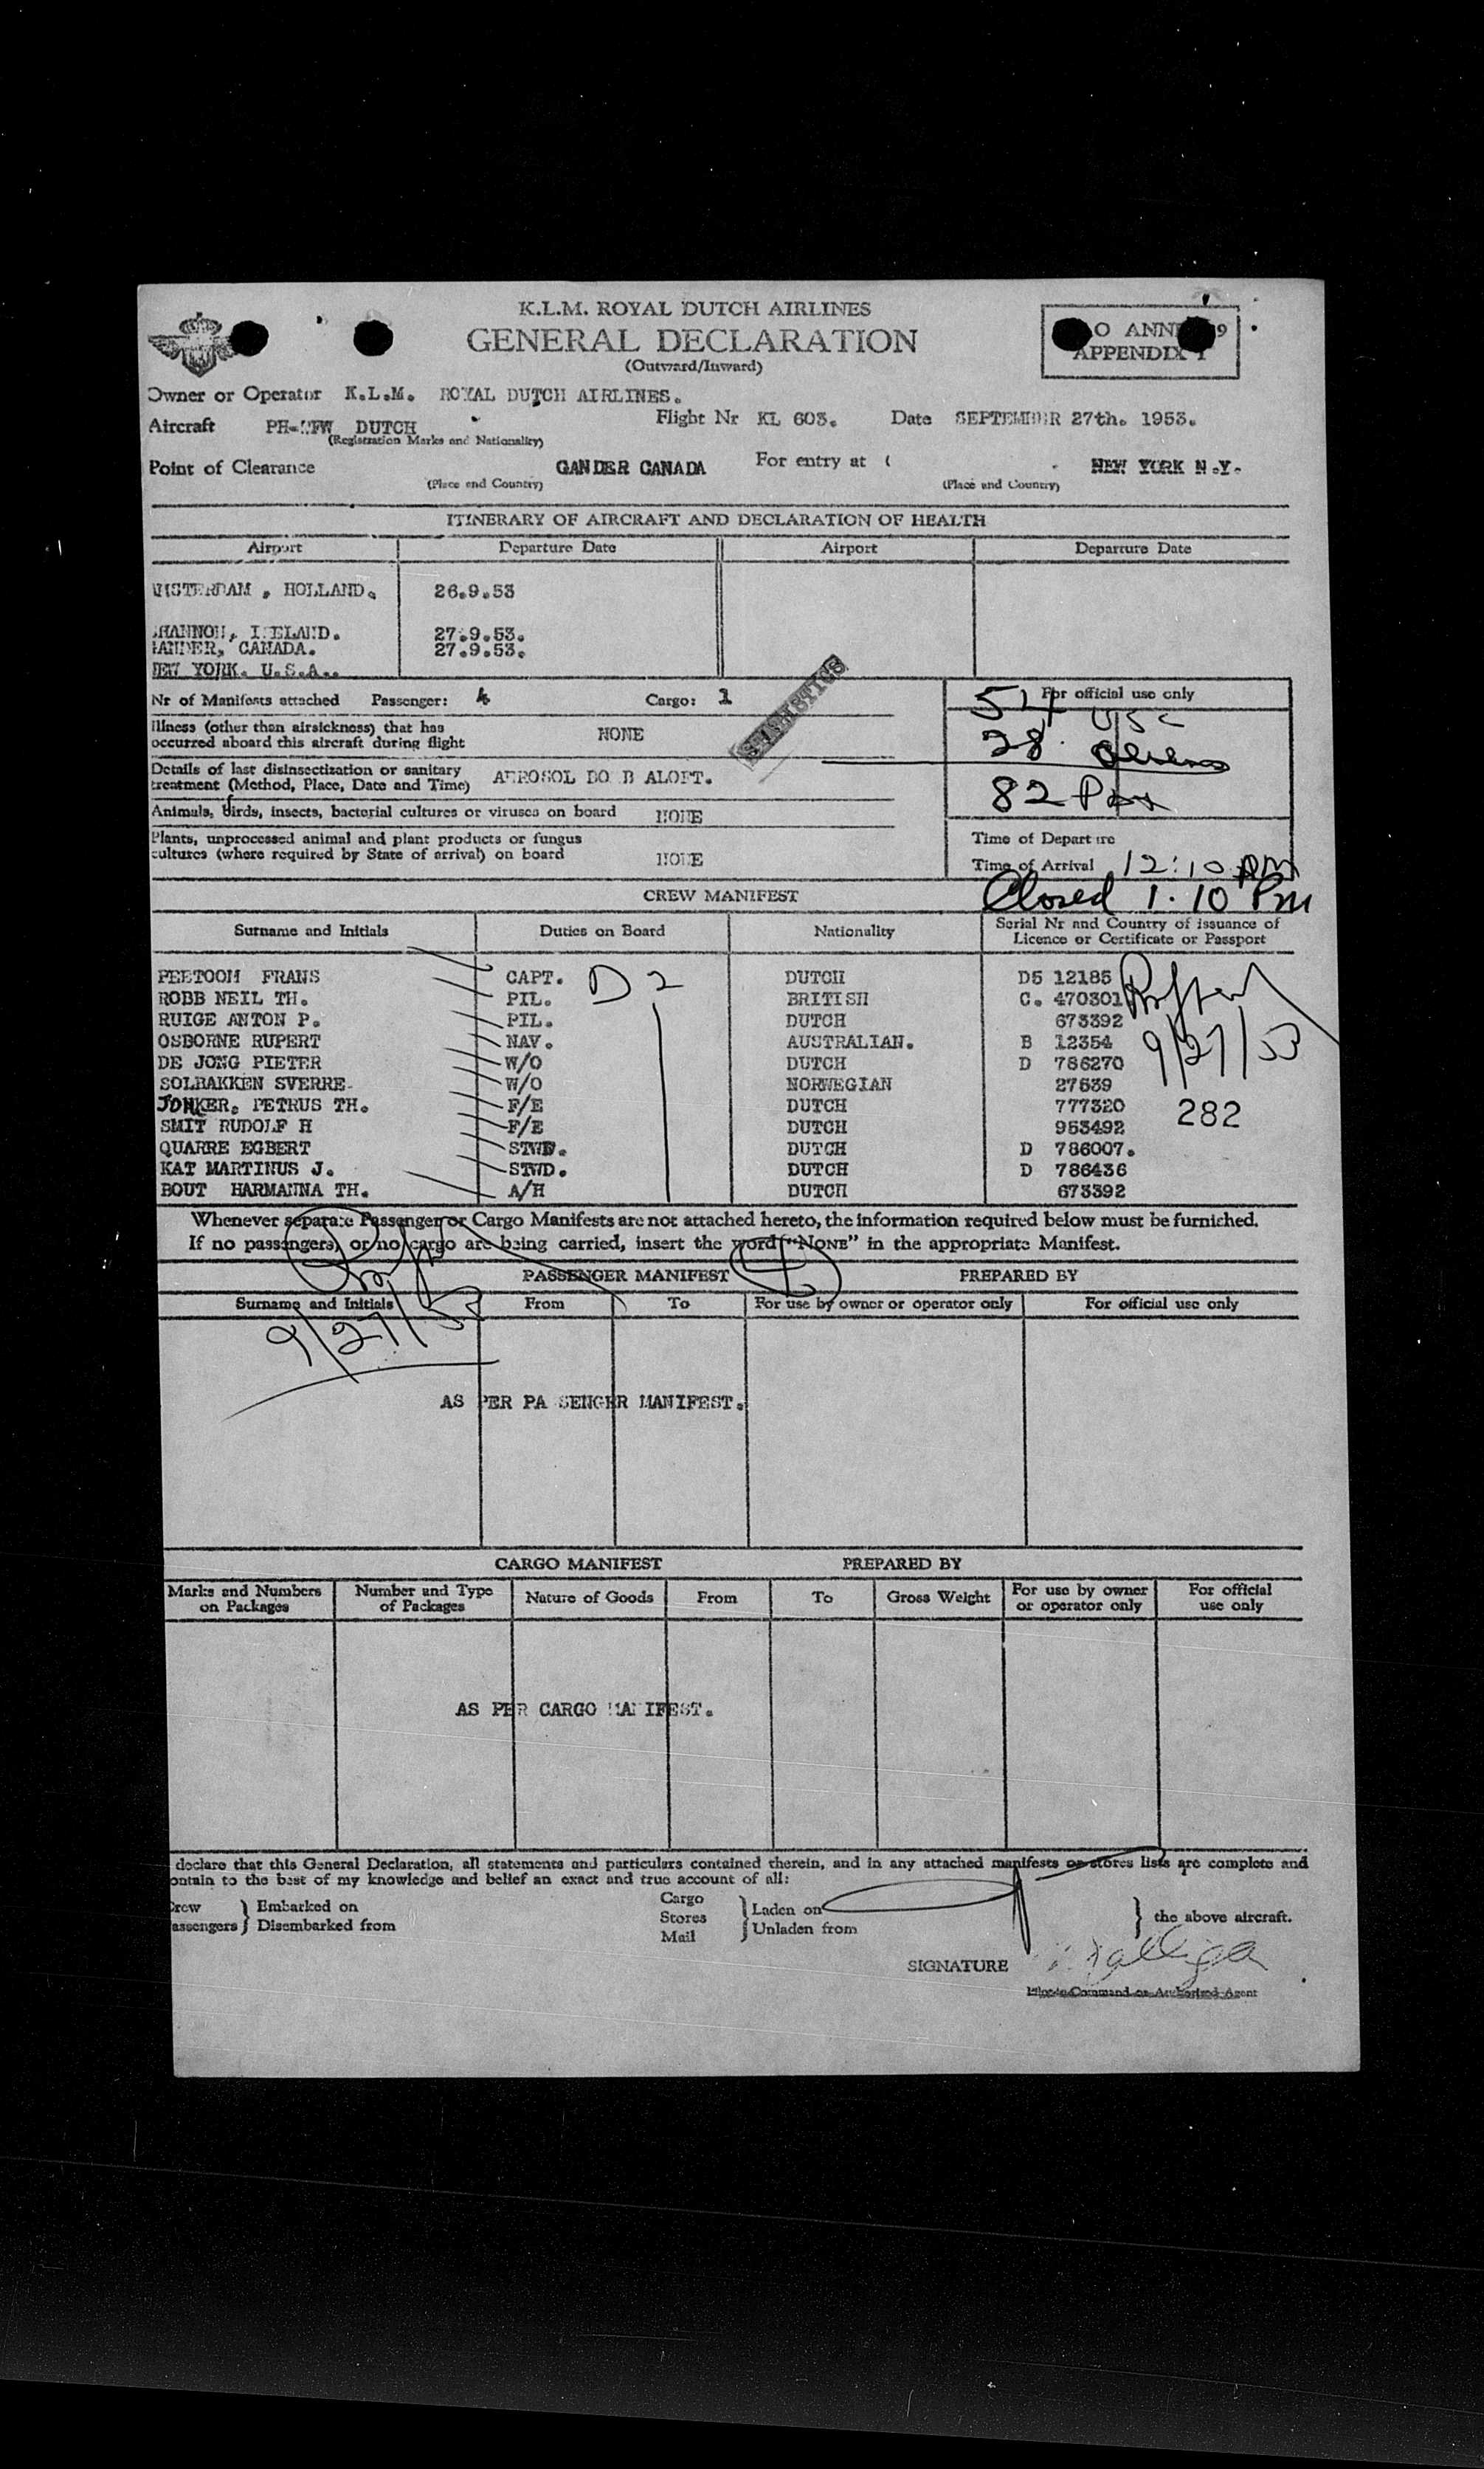 K.L.M. ROYAL DUTCH AIRLINES
GENERAL DECLARATION
(Outward/Inward)
O ANN 9
APPENDIX 1
Owner or Operator K.L.M. ROYAL DUTCH AIRLINES.
Aircraft DUTCH Flight Nr KL 603. Date SEPTEMBER 27th. 1953.
(Registration Marks and Nationality)
Point of Clearance GANDER CANADA For entry at ( NEW YORK N.Y.
(Place and Country) (Place and Country)
ITINERARY OF AIRCRAFT AND DECLARATION OF HEALTH
Airport Departure Date Airport Departure Date
AMSTERDAM , HOLLAND. 26.9.53
SHANNON, IRELAND. 27.9.53.
GANDER, CANADA. 27.9.53.
NEW YORK. U.S.A..
Nr of Manifests attached Passenger: 4 Cargo: 1
STATISTICS
For official use only
54 USC
28 Aliens
82 Pax
Illness (other than airsickness) that has
occurred aboard this aircraft during flight NONE
Details of last disinsectization or sanitary
treatment (Method, Place, Date and Time) AEROSOL BO B ALOFT.
Animals, birds, insects, bacterial cultures or viruses on board NONE
Plants, unprocessed animal and plant products or fungus
cultures (where required by State of arrival) on board NONE
Time of Departure
Time of Arrival 12:10 PM
Closed 1.10 Pm
CREW MANIFEST
Surname and Initials Duties on Board Nationality Serial Nr and Country of issuance of
Licence or Certificate or Passport
PEETOOM FRANS CAPT. D2 DUTCH D5 12185
ROBB NEIL TH. PIL. BRITISH C. 470301
RUIGE ANTON P. PIL. DUTCH 673392
OSBORNE RUPERT NAV. AUSTRALIAN. B 12354
DE JONG PIETER W/O DUTCH D 786270
SOLBAKKEN SVERRE W/O NORWEGIAN 27639
JONKER. PETRUS TH. F/E DUTCH 777320
SMIT RUDOLF H F/E DUTCH 953492
QUARRE EGBERT STWD. DUTCH D 786007.
KAT MARTINUS J. STWD. DUTCH D 786436
BOUT HARMANNA TH. A/H DUTCH 673392
9/27/53
282
Whenever separate Passenger or Cargo Manifests are not attached hereto, the information required below must be furnished.
If no passengers, or no cargo are being carried, insert the word "NONE" in the appropriate Manifest.
PASSENGER MANIFEST PREPARED BY
Surname and Initials From To For use by owner or operator only For official use only
9/27/53
AS PER PA SENGER MANIFEST.
CARGO MANIFEST PREPARED BY
Marks and Numbers
on Packages Number and Type
of Packages Nature of Goods From To Gross Weight For use by owner
or operator only For official
use only
AS PER CARGO MANIFEST.
declare that this General Declaration, all statements and particulars contained therein, and in any attached manifests or stores lists are complete and
ontain to the best of my knowledge and belief an exact and true account of all:
Crew Embarked on Cargo Laden on
assengers Disembarked from Stores Unladen from the above aircraft.
Mail
SIGNATURE
Pilot-in-Command or Authorized Agent